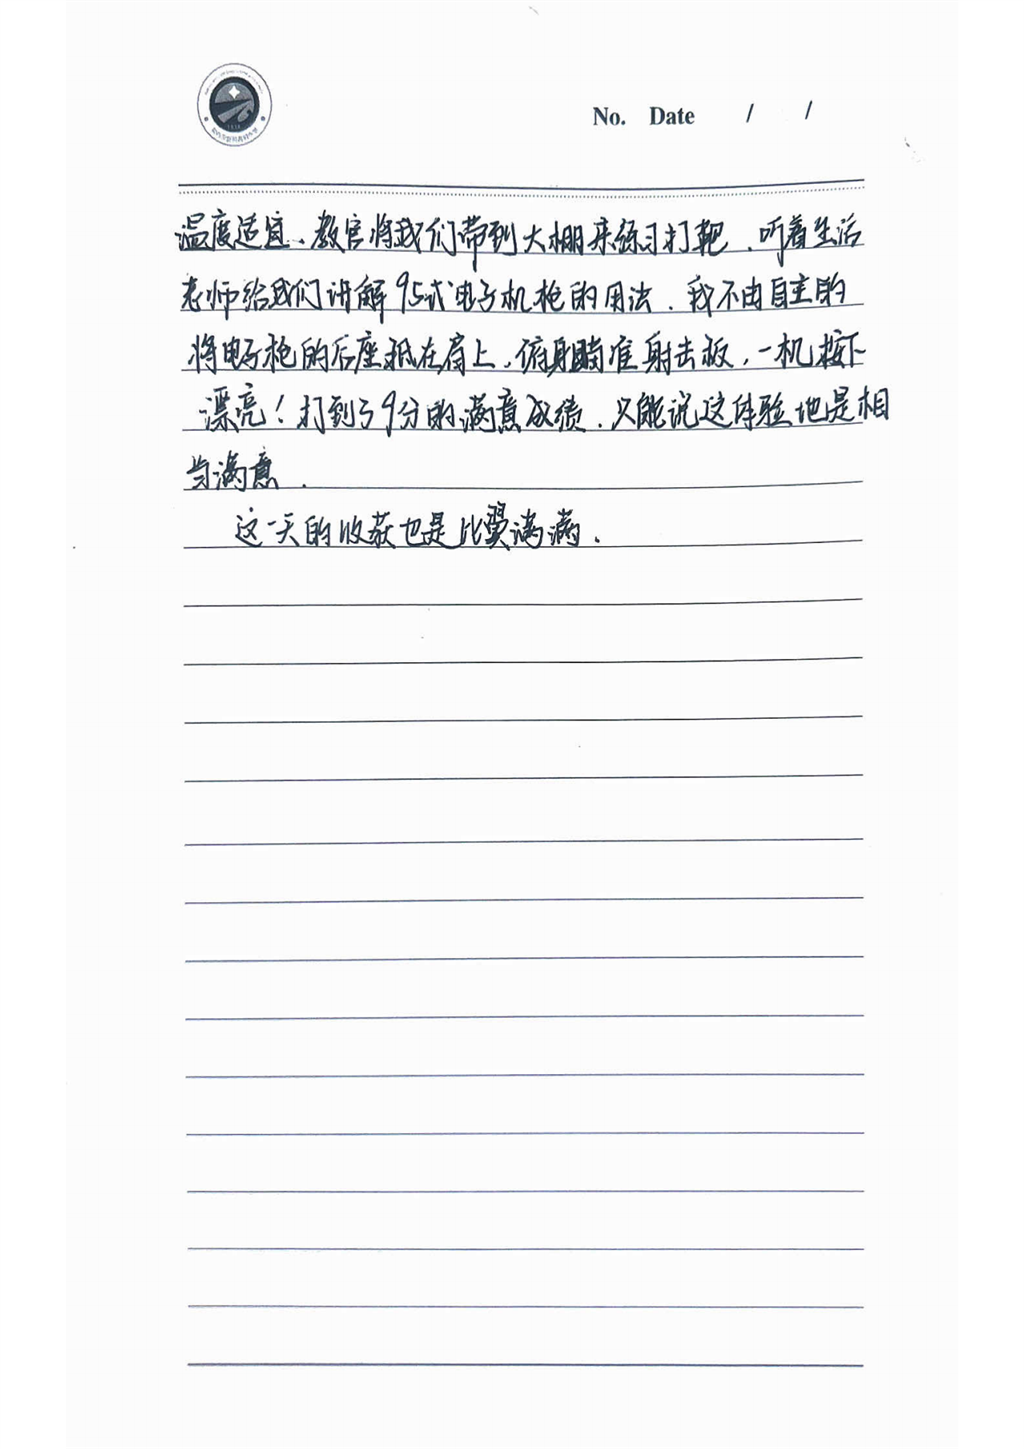 No. Date / /
温度适宜、教官将我们带到大棚来练习打靶.听着生活
老师给我们讲解95式电子机枪的用法.我不由自主的
将电子枪的后座抵在肩上、俯身瞄准射击板、一机按下
漂亮!打到了9分的满意成绩.只能说这体验地是相
当满意.
这一天的收获也是比翼满满.